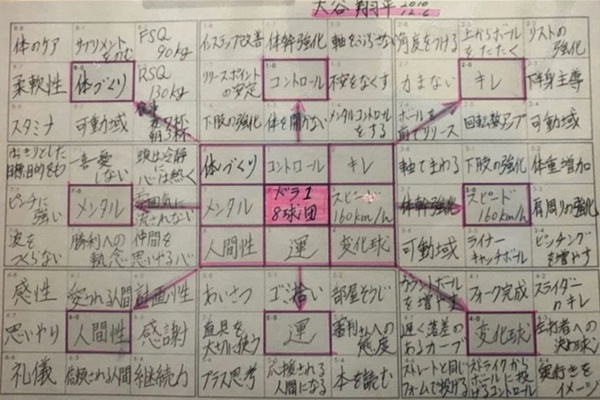 大谷 翔平 2010 12.6
体のケア
サプリメントをのむ
FSQ 90kg
インステップ改善
体幹強化
軸をぶらさない
角度をつける
上からボールをたたく
リストの強化
柔軟性
体づくり
RSQ 130kg
リリースポイントの安定
コントロール
不安をなくす
力まない
キレ
下半身主導
スタミナ
可動域
食事 夜7杯 朝3杯
下肢の強化
体を開かない
メンタルコントロールをする
ボールを前でリリース
回転数アップ
可動域
はっきりとした目標、目的をもつ
一喜一憂しない
頭は冷静に心は熱く
体づくり
コントロール
キレ
軸でまわる
下肢の強化
体重増加
ピンチに強い
メンタル
雰囲気に流されない
メンタル
ドラ1 8球団
スピード 160km/h
体幹強化
スピード 160km/h
肩周りの強化
波をつくらない
勝利への執念
仲間を思いやる心
人間性
運
変化球
可動域
ライナーキャッチボール
ピッチングを増やす
感性
愛される人間
計画性
あいさつ
ゴミ拾い
部屋そうじ
カウントボールを増やす
フォーク完成
スライダーのキレ
思いやり
人間性
感謝
道具を大切に使う
運
審判さんへの態度
遅く落差のあるカーブ
変化球
左打者への決め球
礼儀
信頼される人間
継続力
プラス思考
応援される人間になる
本を読む
ストレートと同じフォームで投げる
ストライクからボールに投げるコントロール
奥行きをイメージ